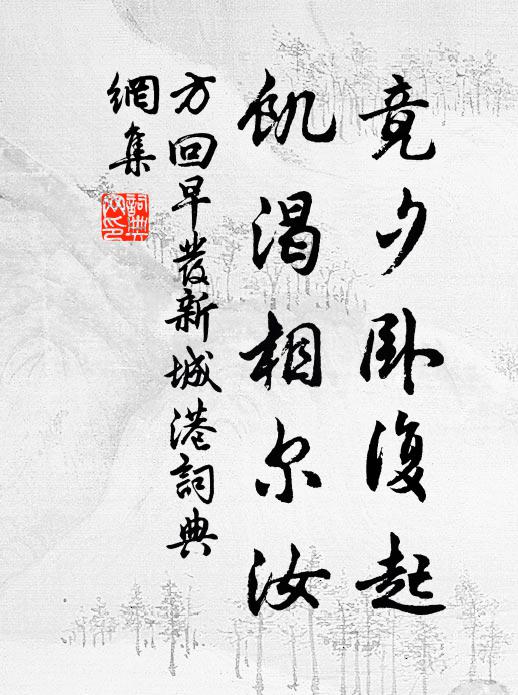 竟夕卧復起
飢渴相尔汝
方回早發新城港詞典
網集
詞典網印